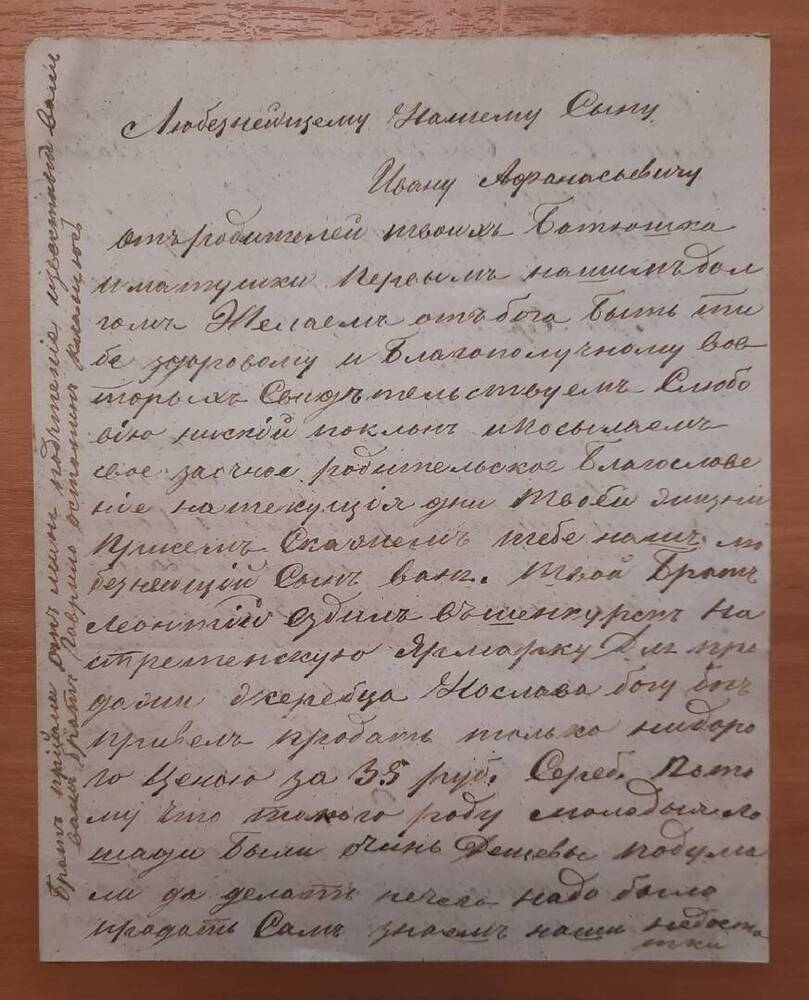 Любезнейщему Нашему Сыну
Ивану Афанасьевичу
отъ родителей твоихъ Батюшка
и матушки Первымъ нашимъ дол
гомъ Желаемъ отъ бога Быть ти
бе здоровому и Благополучному вов
торыхъ Свидѣтельствуемъ Слюбо
вiю нискiй поклонъ и посылаемъ
свое заочное родительское Благослове
нiе на текущiя дни твоей жизни
Присемъ Скажемъ тебе нашъ лю
безнейщiй Сынъ ван. твой Братъ
Леонтiй ездилъ въ шенкурскъ на
стретенскую ярмарку Для про
дажи жеребца Но слава богу богъ
привелъ продать только недоро
го Ценою за 35 руб. Сереб. Пото
му что такого роду молодыя ло
шади Были очинь Дешевы подума
ли да делать нечево надо было
продать Самъ знаемъ наши недоста
тки
Братъ отъ мѣня извѣстный вамъ
вашъ братъ Гаврило остаюсь